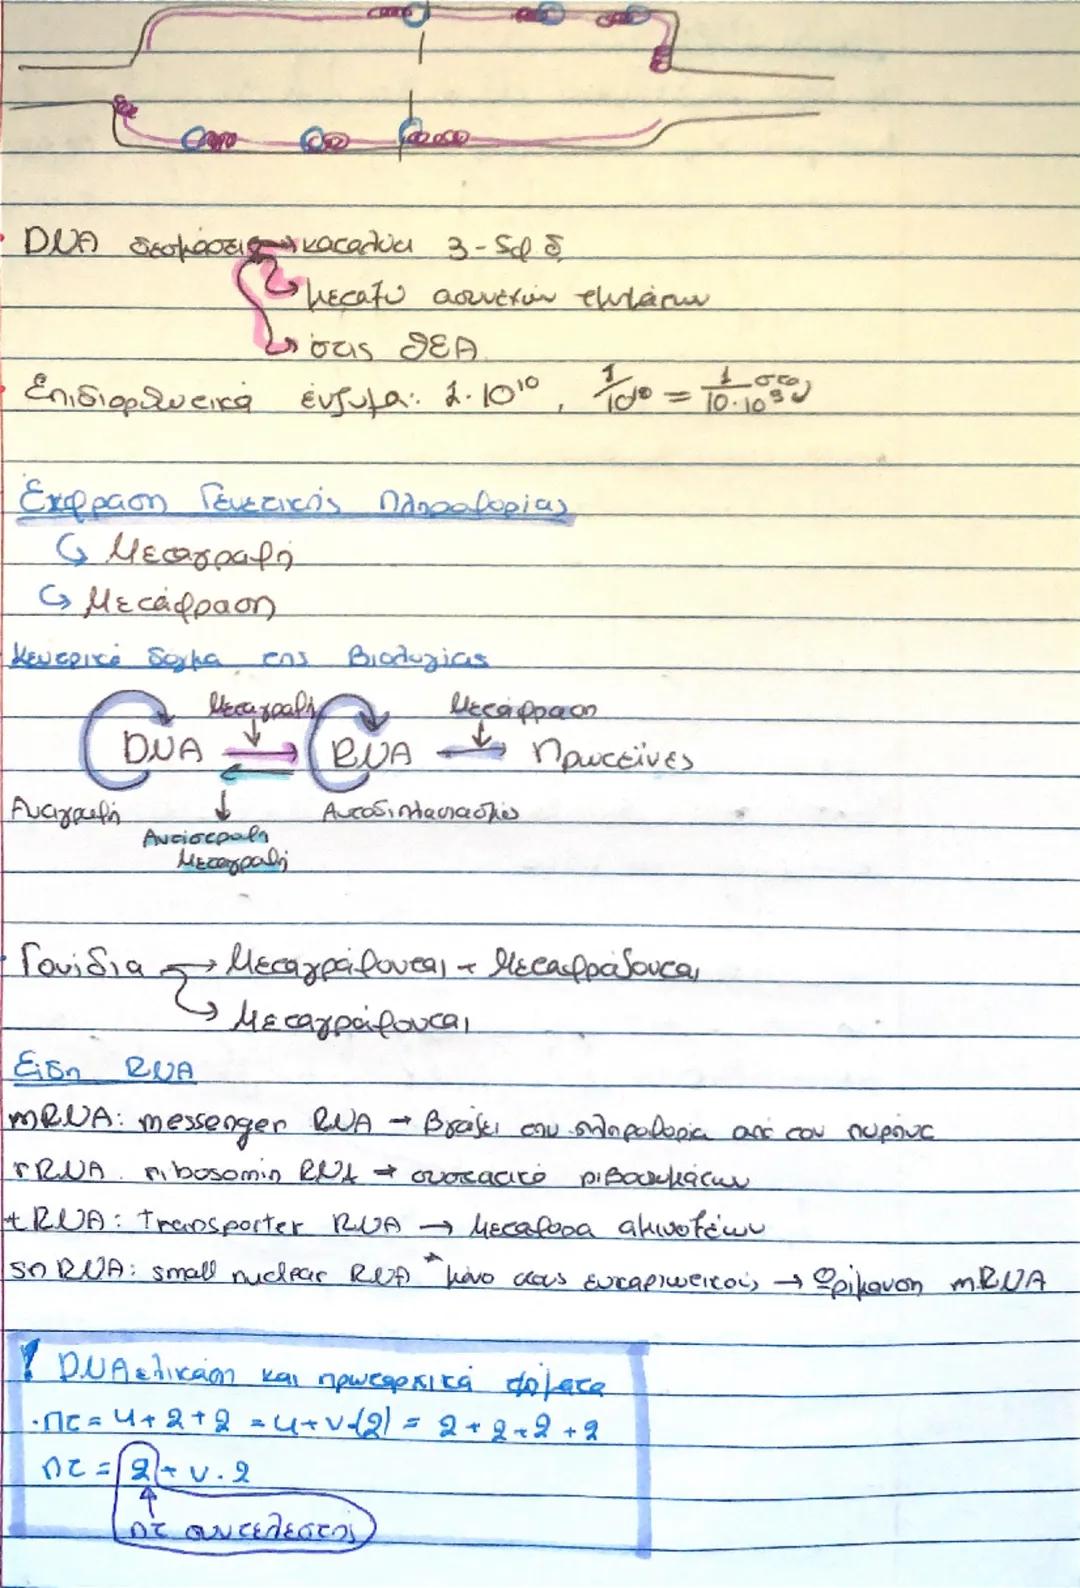 DNA δεσμάσεις → καταλύει 3-5φ.δ
μεταξύ ασυνεχών τμημάτων
στις ΘΕΑ
Επιδιορθωτικά ένζυμα: 1·10¹⁰, 1/10¹⁰ = 1/10·10⁹ στα
Έκφραση Γενετικής Πληροφορίας
↳ Μεταγραφή
↳ Μετάφραση
Κεντρικό δόγμα της Βιολογίας
Μεταγραφή Μετάφραση
DNA → RNA → Πρωτεΐνες
Αντιγραφή Αυτοδιπλασιασμός
Αντίστροφη
Μεταγραφή
Γονίδια → Μεταγράφονται + Μεταφράζονται
→ Μεταγράφονται
Είδη RNA
mRNA: messenger RNA → Βγάζει την πληροφορία από τον πυρήνα
rRNA. ribosomin RNA → συστατικό ριβοσωμάτων
tRNA: Transporter RNA → Μεταφορά αμινοξέων
snRNA: small nuclear RNA * μόνο στους ευκαριωτικούς → Ωρίμανση mRNA
! DNA ελικάση και πρωταρχικά τμήματα
·πτ = 4 + 2 + 2 = 4 + ν·(2) = 2 + 2 + 2 + 2
πτ = 2 + ν·2
πτ συντελεστής